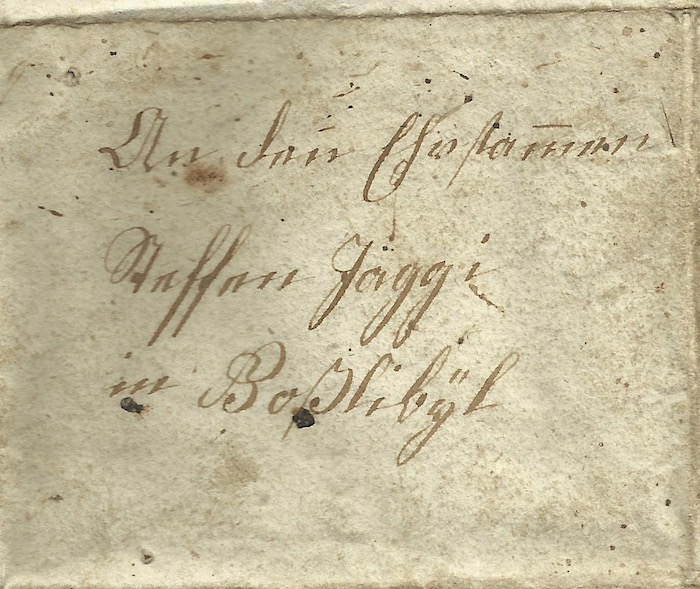 An den̄ Ehrsam̄en
Steffen Jäggi
in Boßlibÿl